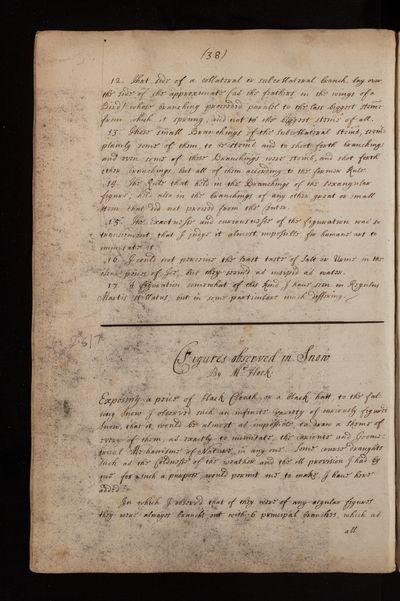 (38)
12. That side of a collateral or subcollateral branch, lay over
the side of the approximate (as the feathers in the wings of a
Bird) whose branching proceeded paralel to the last biggest stemms
from which it sprung, and not to the biggest stems of all.
13. These small Branchings of the subcollateral stemms, seemd
plainly some of them, to be stemms and to shoot forth branchings
and even some of these Branchings were stemms, and shot forth
other branchings, but all of them according to the former Rule.
14. The Rule that held in the Branchings of the sexangular
figure, held also in the branchings of any other great or small
stem that did not proceed from the Center.
15. The Exactnesse and curiousnesse of the figuration was so
transcendent, that I judge it almost impossible for humane art to
immitate it.
16. I could not perceive the least taste of Salt or Urine in the
clear peices of Ice, but they seemd as insipid as water.
17. A figuration somewhat of this kind I have seen in Regulus
Martis stellatus, but in some particulars much differing.
Figures observed in Snow
By Mr Hook
Exposing a peice of black Cloath, or a black hatt to the fal-
ling Snow I observed such an infinite variety of curiously figurd
Snow, that it would be almost as impossible, to draw a sheme of
every of them, as exactly to immitate, the curious and Geome-
trical Mechanisme of Nature in any one. Some coarse draughts
such as the coldnesse of the weather and the ill provision I had by
me for such a purpose, would permit me to make, I have here
added.
In which I observd that if they were of any regular figures
they were always branchd out with 6 principal branches, which as
all